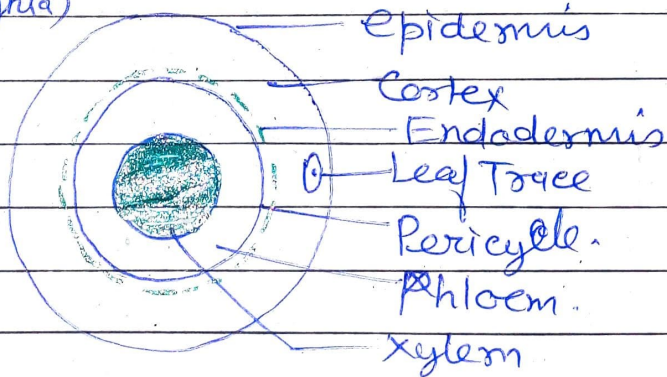 epidermis
Cortex
Endodermis
Leaf Trace
Pericycle.
Phloem.
xylem